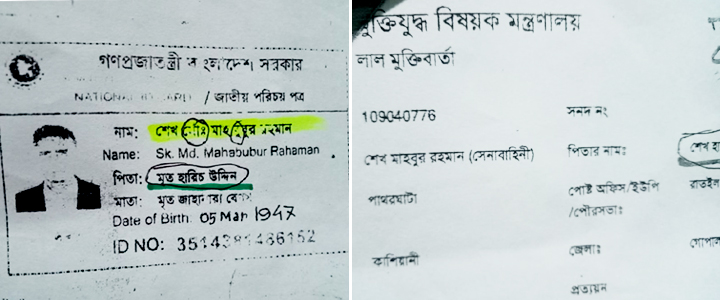 গণপ্রজাতন্ত্রী বাংলাদেশ সরকার
NATIONAL ID CARD / জাতীয় পরিচয় পত্র
নাম: শেখ মোঃ মাহবুবুর রহমান
Name: Sk. Md. Mahabubur Rahaman
পিতা: মৃত হারিচ উদ্দিন
মাতা: মৃত
Date of Birth: 05 Mar 1947
ID NO:
মুক্তিযুদ্ধ বিষয়ক মন্ত্রণালয়
লাল মুক্তিবার্তা
109040776 সনদ নং
শেখ মাহবুর রহমান (সেনাবাহিনী) পিতার নাম: শেখ
পাথরঘাটা পোষ্ট অফিস/ইউপি
/পৌরসভাঃ রাতইল
কাশিয়ানী জেলাঃ গোপাল
প্রত্যয়ন